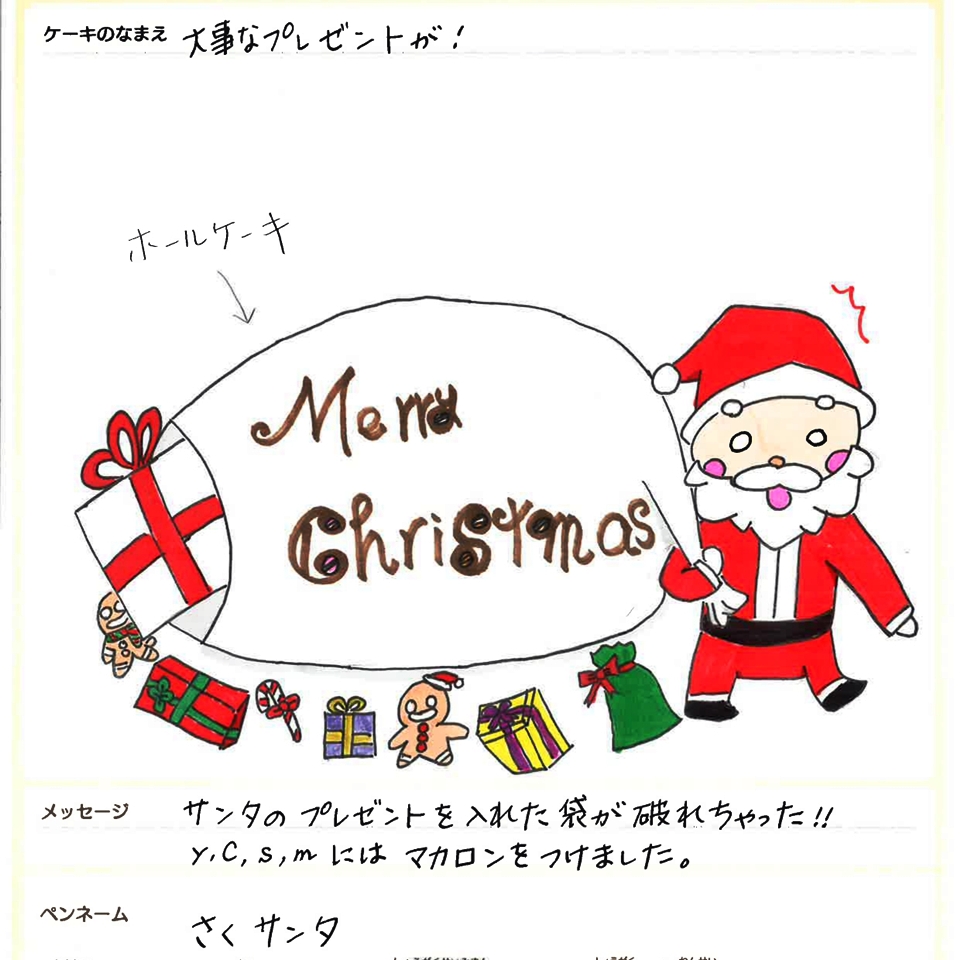 ケーキのなまえ 大事なプレゼントが!
ホールケーキ
Merry
Christmas
メッセージ サンタのプレゼントを入れた袋が破れちゃった!!
y,C,s,mにはマカロンをつけました。
ペンネーム さくサンタ